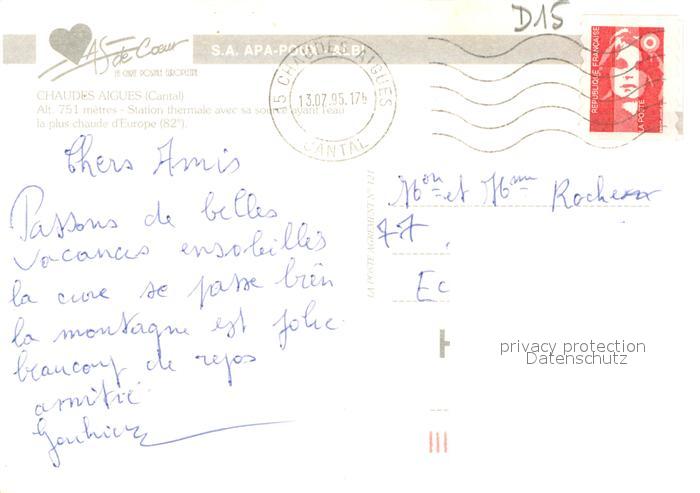 D15
As de Cœur
LA CARTE POSTALE EUROPEENNE
S.A. APA-POUX ALBI
CHAUDES AIGUES (Cantal)
Alt. 751 mètres - Station thermale avec sa source ayant l'eau
la plus chaude d'Europe (82°).
15 CHAUDES-AIGUES
13.07.95.17h
CANTAL
REPUBLIQUE FRANÇAISE
LA POSTE
Chers Amis
Passons de belles
vacances ensoleillés
la cure se passe bien
la montagne est jolie
beaucoup de repos
amitié
LA POSTE AGREMENT N° 121
Mon et Mme Rochexx
77
Ec
privacy protection
Datenschutz